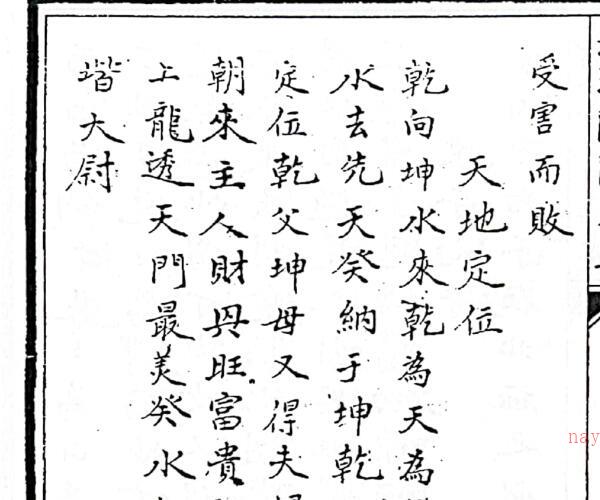 受害而敗
天地定位
乾向坤水來乾為天為
水去先天癸納于坤乾
定位乾父坤母又得夫婦
朝來主人財興旺富貴
上龍透天門最美癸水
堦大尉
nay